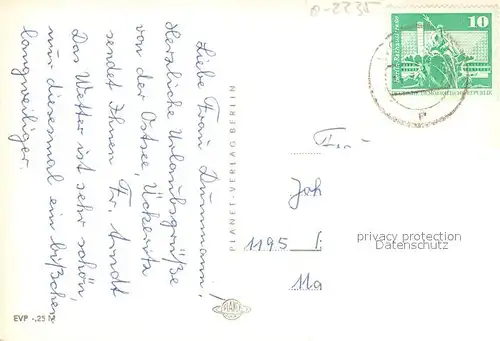 0-2235
10
DEUTSCHE DEMOKRATISCHE REPUBLIK
Liebe Frau Dummann!
Herzliche Urlaubsgrüße
von der Ostsee, Ückeritz
sendet Ihnen Fr. Arndt
Das Wetter ist sehr schön,
nur diesesmal ein bißchen
langweiliger.
PLANET-VERLAG BERLIN
PLANET
Frau
Joh
1195
11a
privacy protection
Datenschutz
EVP -,25 M